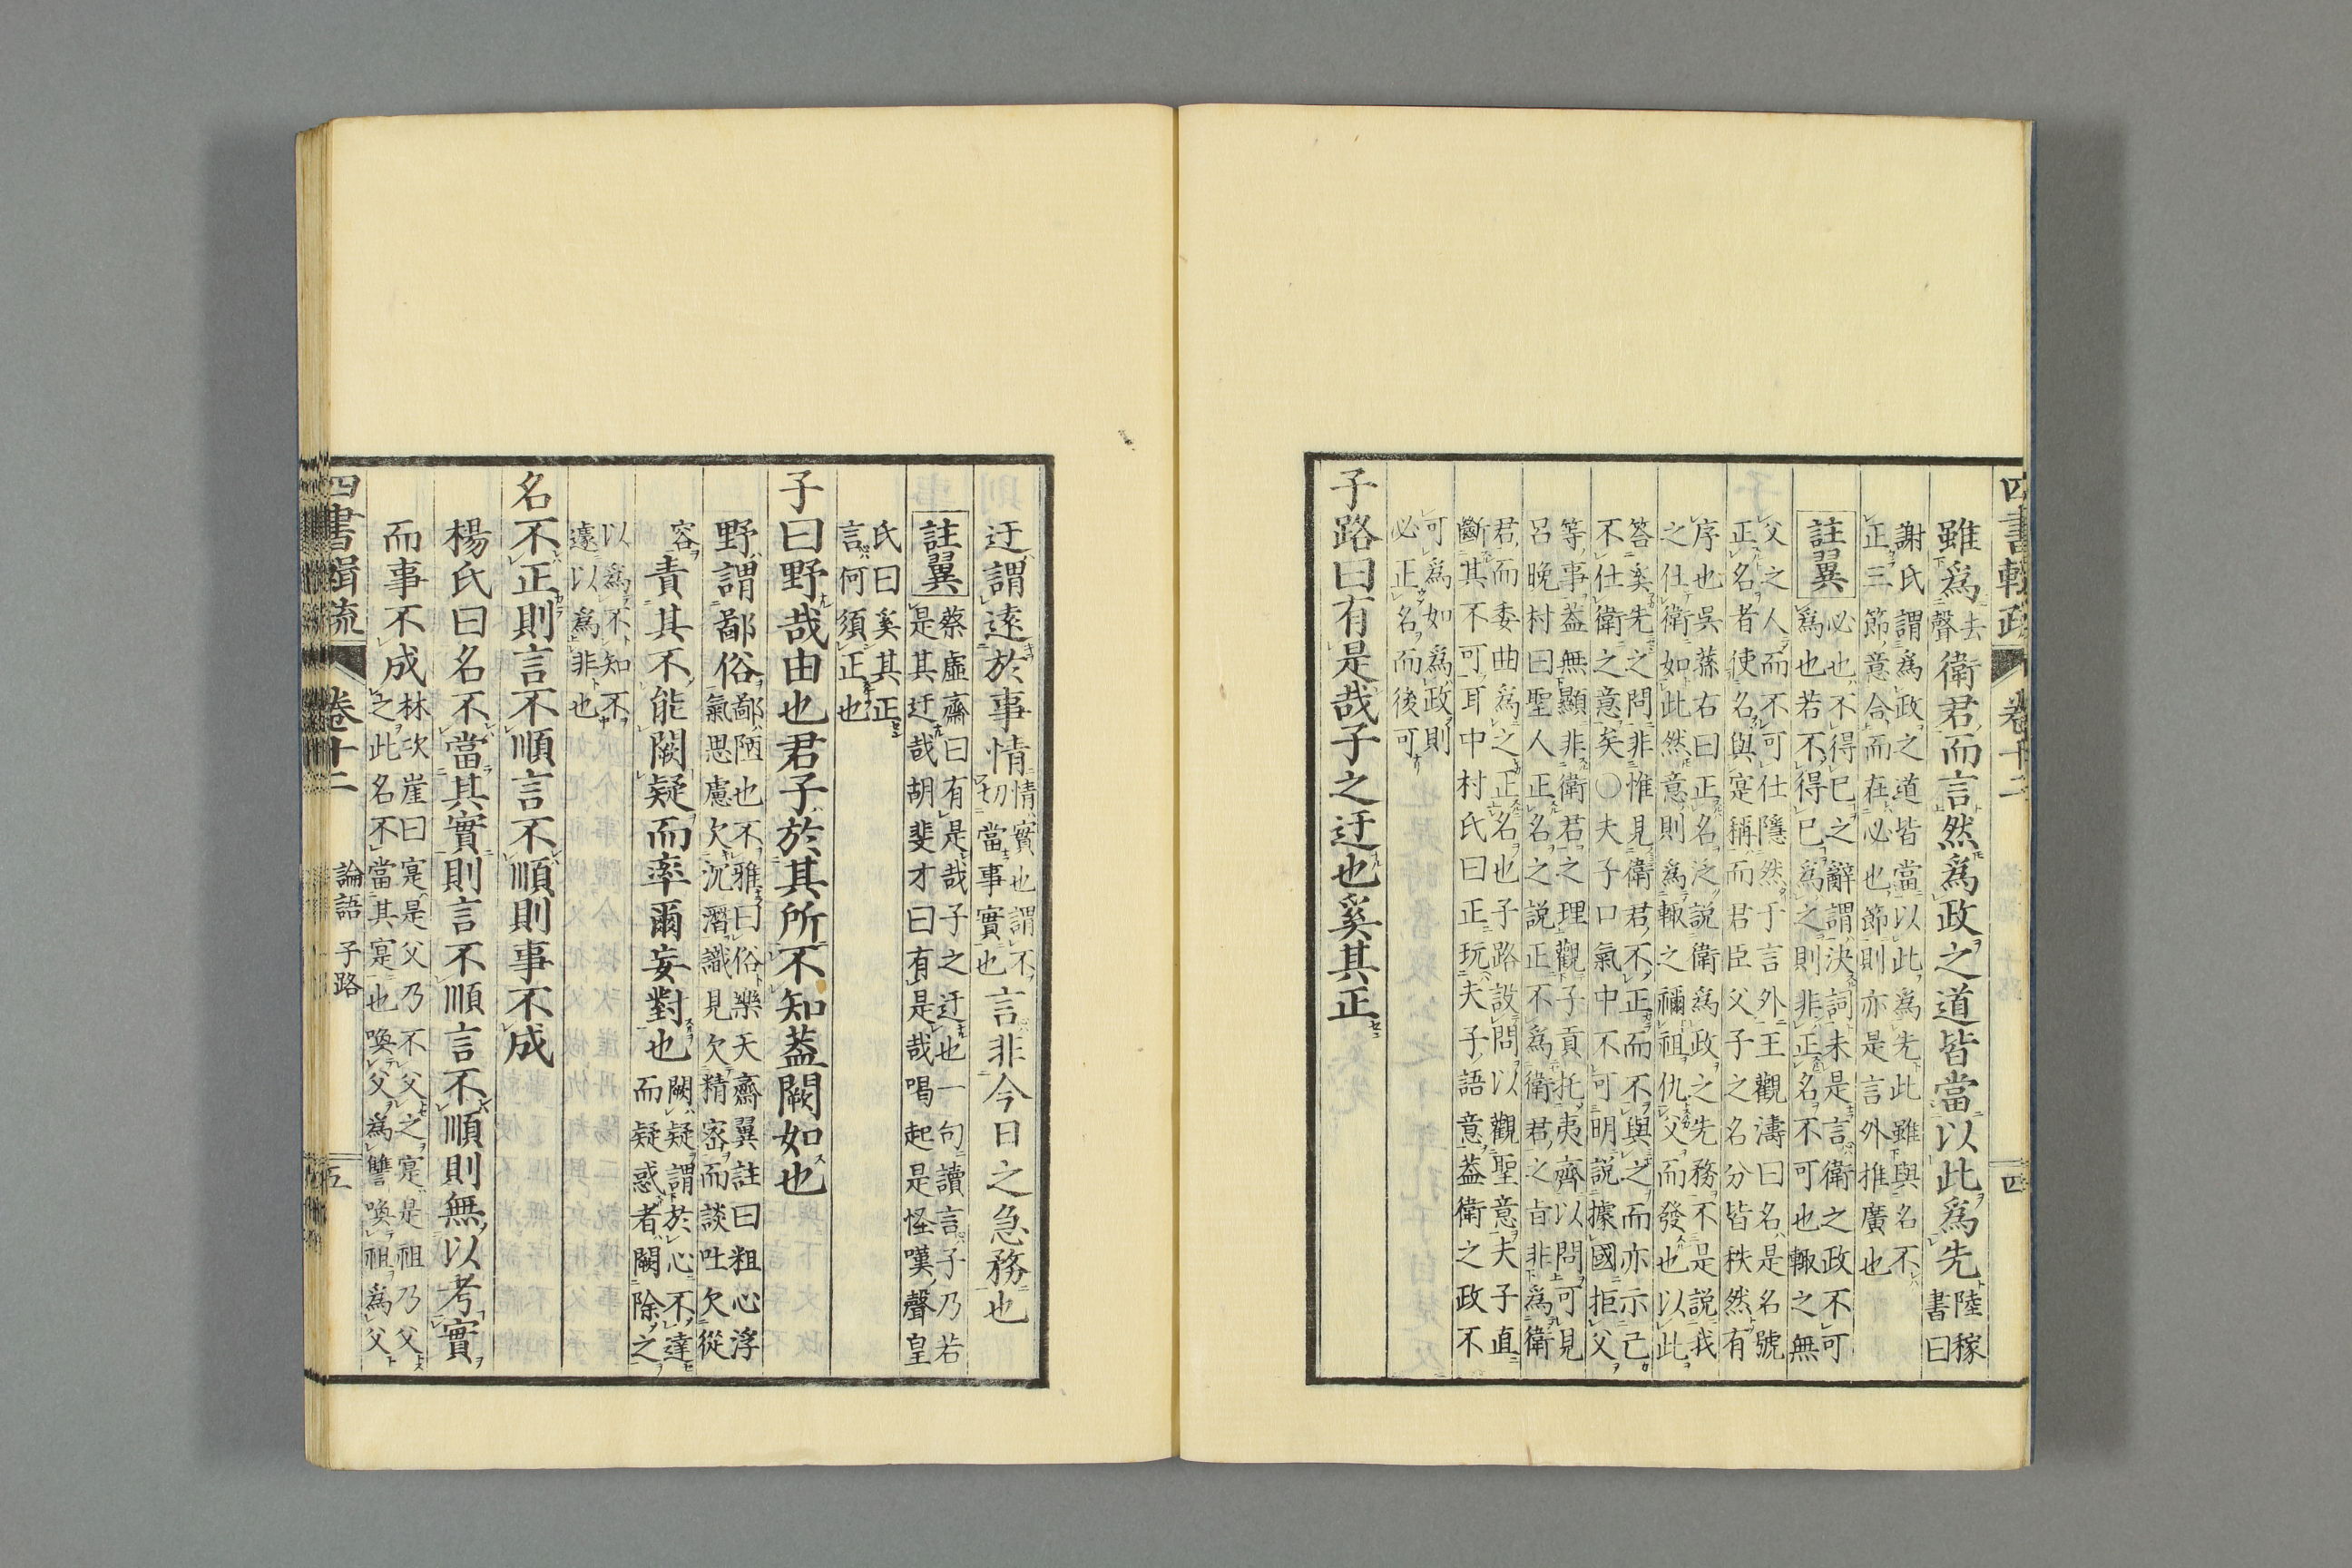 四書輯疏 卷十二 四
雖爲去聲衛君而言然爲政之道皆當以此爲先陸稼書曰
謝氏謂爲政之道皆當以此爲先此雖與名不
正三節意合而在必也節則亦是言外推廣也
註翼必也不得已之辭謂決詞未是言衛之政不可
爲也若不得已爲之則非正名不可也輒之無
父之人而不可仕隱然于言外王觀濤曰名是名號
正名者使名與寔稱而君臣父子之名分皆秩然有
序也吳蓀右曰正名泛說衛爲政之先務不是説我
之仕衛如此然意則爲輒之禰祖仇父而發也以此
答奚先之問非惟見衛君不正而不與之而亦示己
不仕衛之意矣〇夫子口氣中不可明説據國拒父
等事蓋無顯非衛君之理觀子貢托夷齊以問可見
呂晚村曰聖人正名之説正不爲衛君之旨非爲衛
君而委曲爲之正名也子路設問以觀聖意夫子直
斷其不可耳中村氏曰正玩夫子語意蓋衛之政不
可爲如爲政則
必正名而後可
子路曰有是哉子之迂也奚其正
迂謂遠於事情情實也謂不切當事實也言非今日之急務也
註翼蔡虛齋曰有是哉子之迂也一句讀言子乃若
是其迂哉胡斐才曰有是哉喝起是怪嘆聲皇
氏曰奚其正
言何須正也
子曰野哉由也君子於其所不知蓋闕如也
野謂鄙俗鄙陋也不雅曰俗樂天齋翼註曰粗心浮
氣思慮欠沉潛識見欠精密而談吐欠從
容責其不能闕疑而率爾妄對也闕疑謂於心不達
而疑惑者闕除之
以爲不知不
遠以爲非也
名不正則言不順言不順則事不成
楊氏曰名不當其實則言不順言不順則無以考實
而事不成林次崖曰寔是父乃不父之寔是祖乃父
之此名不當其寔也喚父爲讐喚祖爲父
四書輯疏 卷十二 論語 子路 五